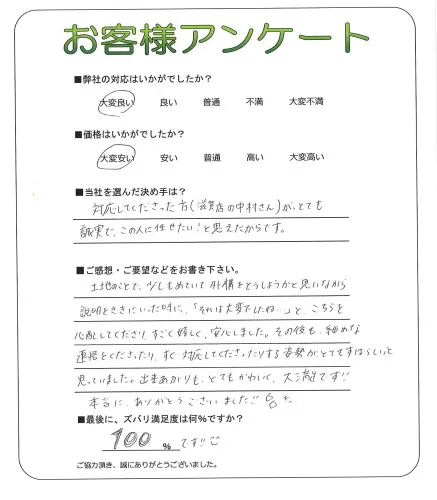 お客様アンケート
■弊社の対応はいかがでしたか？
大変良い 良い 普通 不満 大変不満
■価格はいかがでしたか？
大変安い 安い 普通 高い 大変高い
■当社を選んだ決め手は？
対応してくださった方(滋賀店の中村さん)が、とても
誠実で、この人に任せたい！と思えたからです。
■ご感想・ご要望などをお書き下さい。
土地のことで、少しもめていて外構をどうしようかと思いながら
説明をききにいった時に、「それは大変でしたね…」と、こちらを
心配してくださり、すごく嬉しく、安心しました。その後も、細めな
連絡をくださったり、すぐ対応してくださったりする姿勢が、とてもすばらしいと
思っていました。出来あがりも、とてもかわいく、大満足です!!
本当に、ありがとうございました!!
■最後に、ズバリ満足度は何%ですか？
100 % です!!
ご協力頂き、誠にありがとうございました。